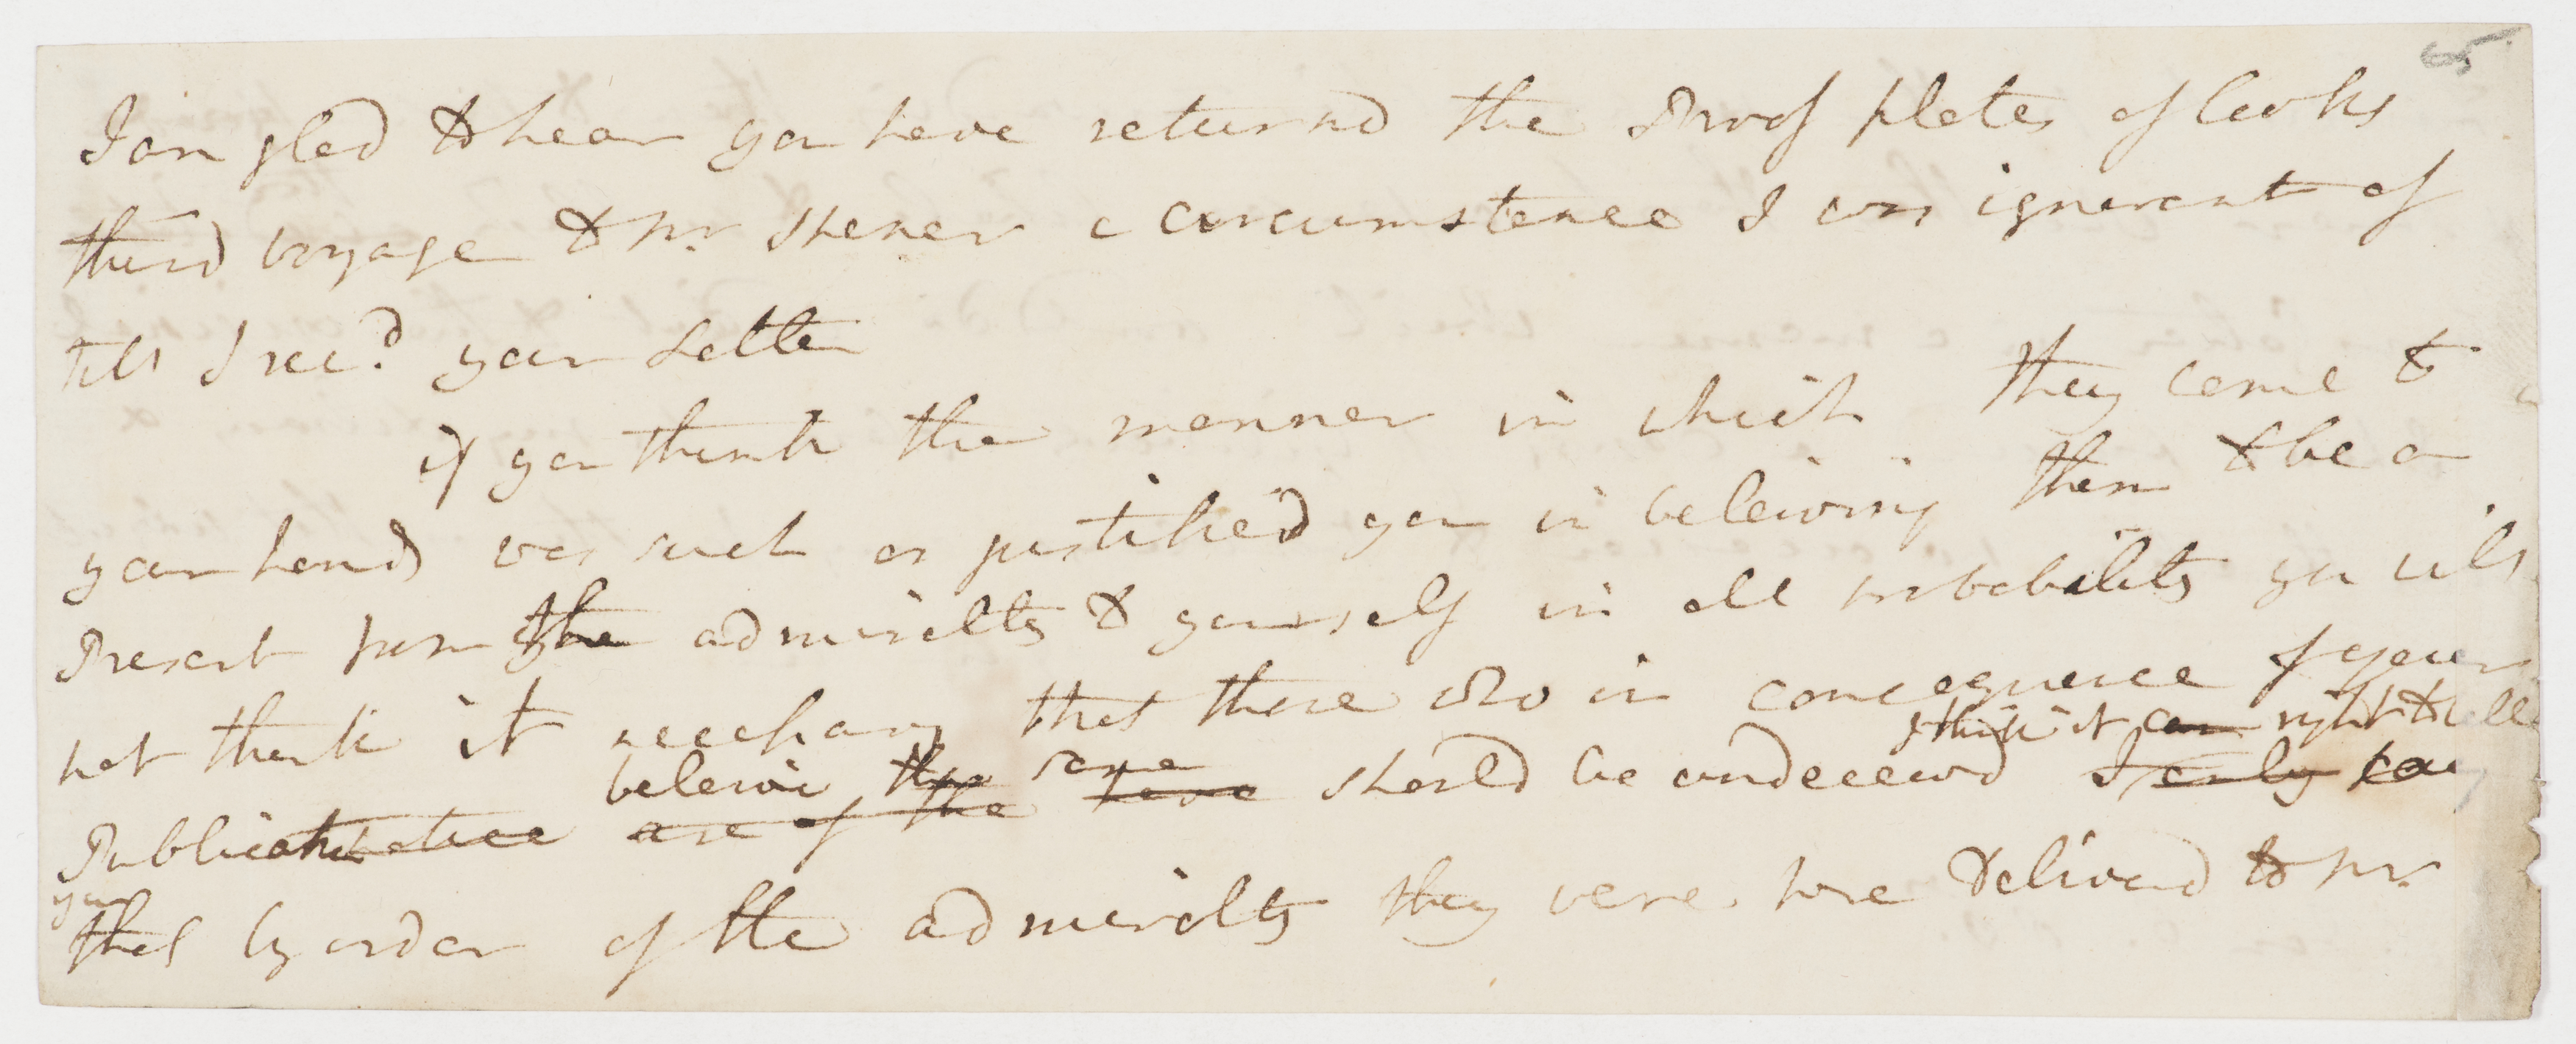 65
I am glad to hear you have returnd the Proof plates of Cooks
third voyage to Mr. Skener a circumstance I was ignorant of
till I recd. your Letter
if you think the manner in which they came to
your hands was such as justified you in beleiving them to be a
Present from the admiralty to yourself in all probability you will
not think it necessary that those who in consequence of your
beleive the same I think it right to tell
Publication are of the have should be undeceivd I only say
you
that by order of the admiralty they were here deliverd to Mr.